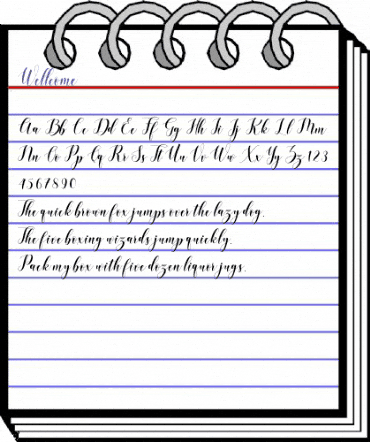 Wellcome
Aa Bb Cc Dd Ee Ff Gg Hh Ii Jj Kk Ll Mm
Nn Oo Pp Qq Rr Ss Tt Uu Vv Ww Xx Yy Zz 1 2 3
4 5 6 7 8 9 0
The quick brown fox jumps over the lazy dog.
The five boxing wizards jump quickly.
Pack my box with five dozen liquor jugs.